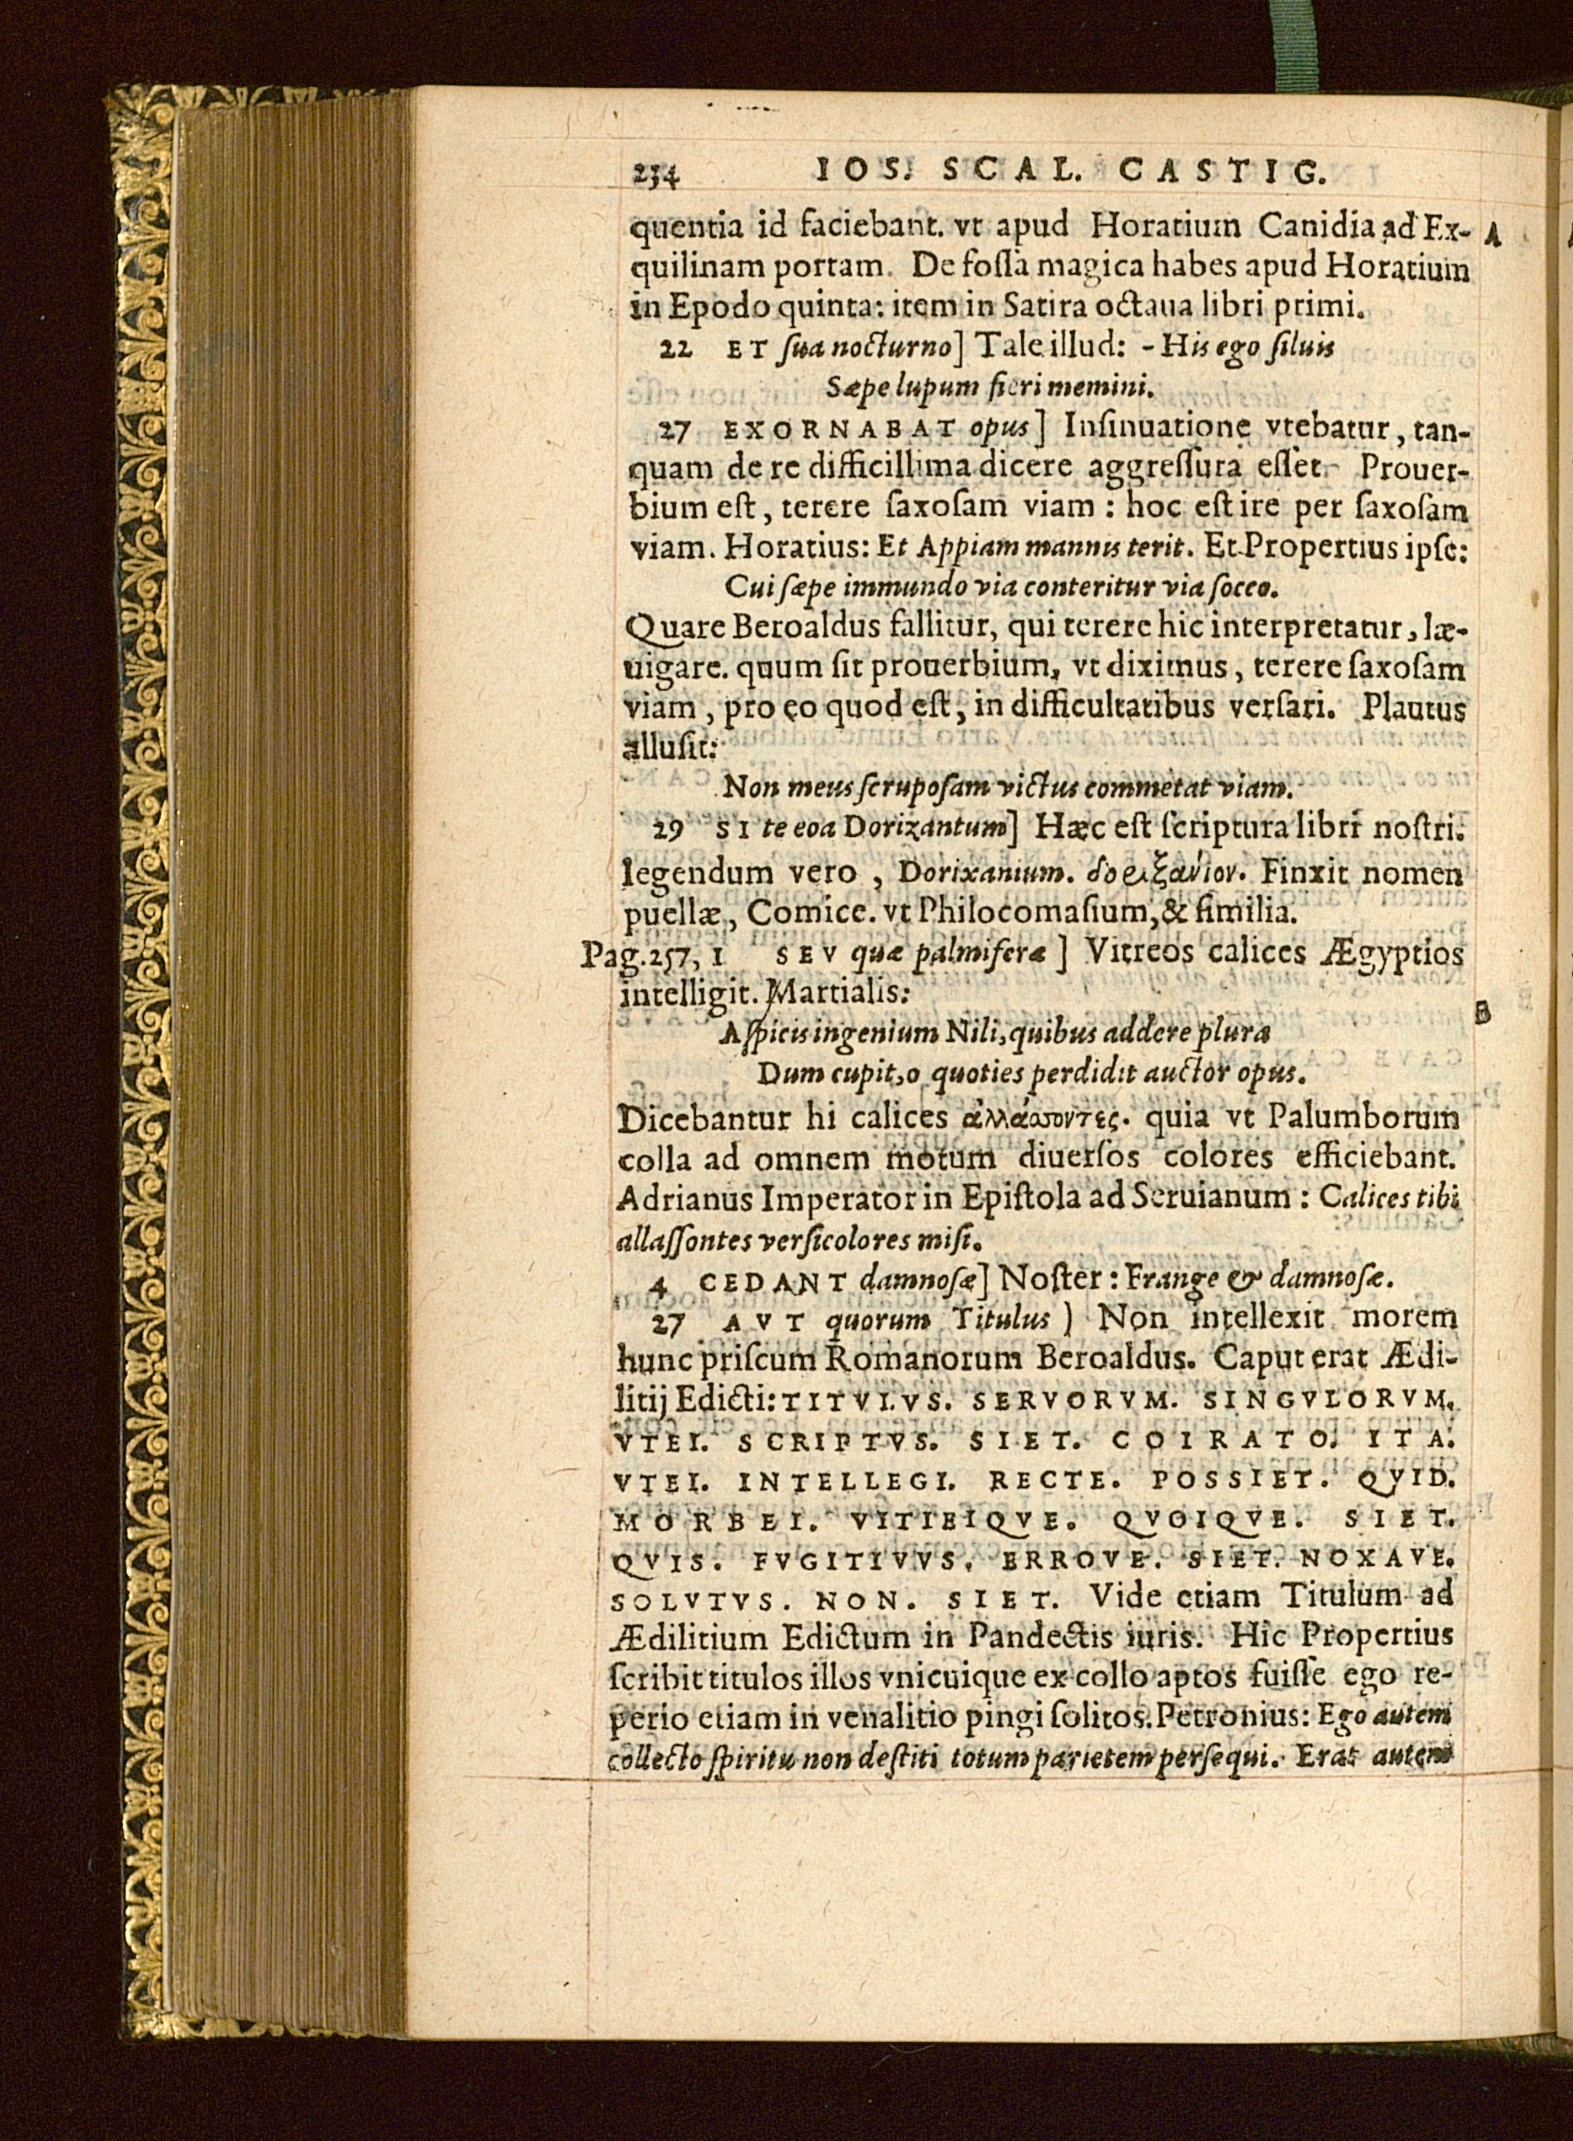 234 IOS. SCAL. CASTIG.
quentia id faciebant. vt apud Horatium Canidia ad Ex- A
quilinam portam. De fossa magica habes apud Horatium
in Epodo quinta: item in Satira octaua libri primi.
22 ET sua nocturno] Tale illud: - His ego siluis
Sæpe lupum fieri memini.
27 EXORNABAT opus] Insinuatione vtebatur, tan-
quam de re difficillima dicere aggressura esset. Prouer-
bium est, terere saxosam viam : hoc est ire per saxosam
viam. Horatius: Et Appiam mannis terit. Et Propertius ipse:
Cui sæpe immundo via conteritur via socco.
Quare Beroaldus fallitur, qui terere hic interpretatur, læ-
uigare. quum sit prouerbium, vt diximus, terere saxosam
viam, pro eo quod est, in difficultatibus versari. Plautus
allusit:
Non meus scruposam victus commetat viam.
29 SI te eoa Dorizantum] Hæc est scriptura libri nostri.
legendum vero, Dorixanium. δοριξάνιον. Finxit nomen
puellæ, Comice. vt Philocomasium, & similia.
Pag.257, 1 SEV quæ palmiferæ] Vitreos calices Ægyptios
intelligit. Martialis: B
Aspicis ingenium Nili, quibus addere plura
Dum cupit, o quoties perdidit auctor opus.
Dicebantur hi calices ἀλλάσσοντες. quia vt Palumborum
colla ad omnem motum diuersos colores efficiebant.
Adrianus Imperator in Epistola ad Seruianum : Calices tibi
allassontes versicolores misi.
4 CEDANT damnosæ] Noster: Frange & damnosæ.
27 AVT quorum Titulus) Non intellexit morem
hunc priscum Romanorum Beroaldus. Caput erat Ædi-
litij Edicti: TITVLVS. SERVORVM. SINGVLORVM.
VTEI. SCRIPTVS. SIET. COIRATO. ITA.
VTEI. INTELLEGI. RECTE. POSSIET. QVID.
MORBEI. VITIEIQVE. QVOIQVE. SIET.
QVIS. FVGITIVVS. ERROVE. SIET. NOXAVE.
SOLVTVS. NON. SIET. Vide etiam Titulum ad
Ædilitium Edictum in Pandectis iuris. Hic Propertius
scribit titulos illos vnicuique ex collo aptos fuisse ego re-
perio etiam in venalitio pingi solitos. Petronius: Ego autem
collecto spiritu non destiti totum parietem persequi. Erat autem